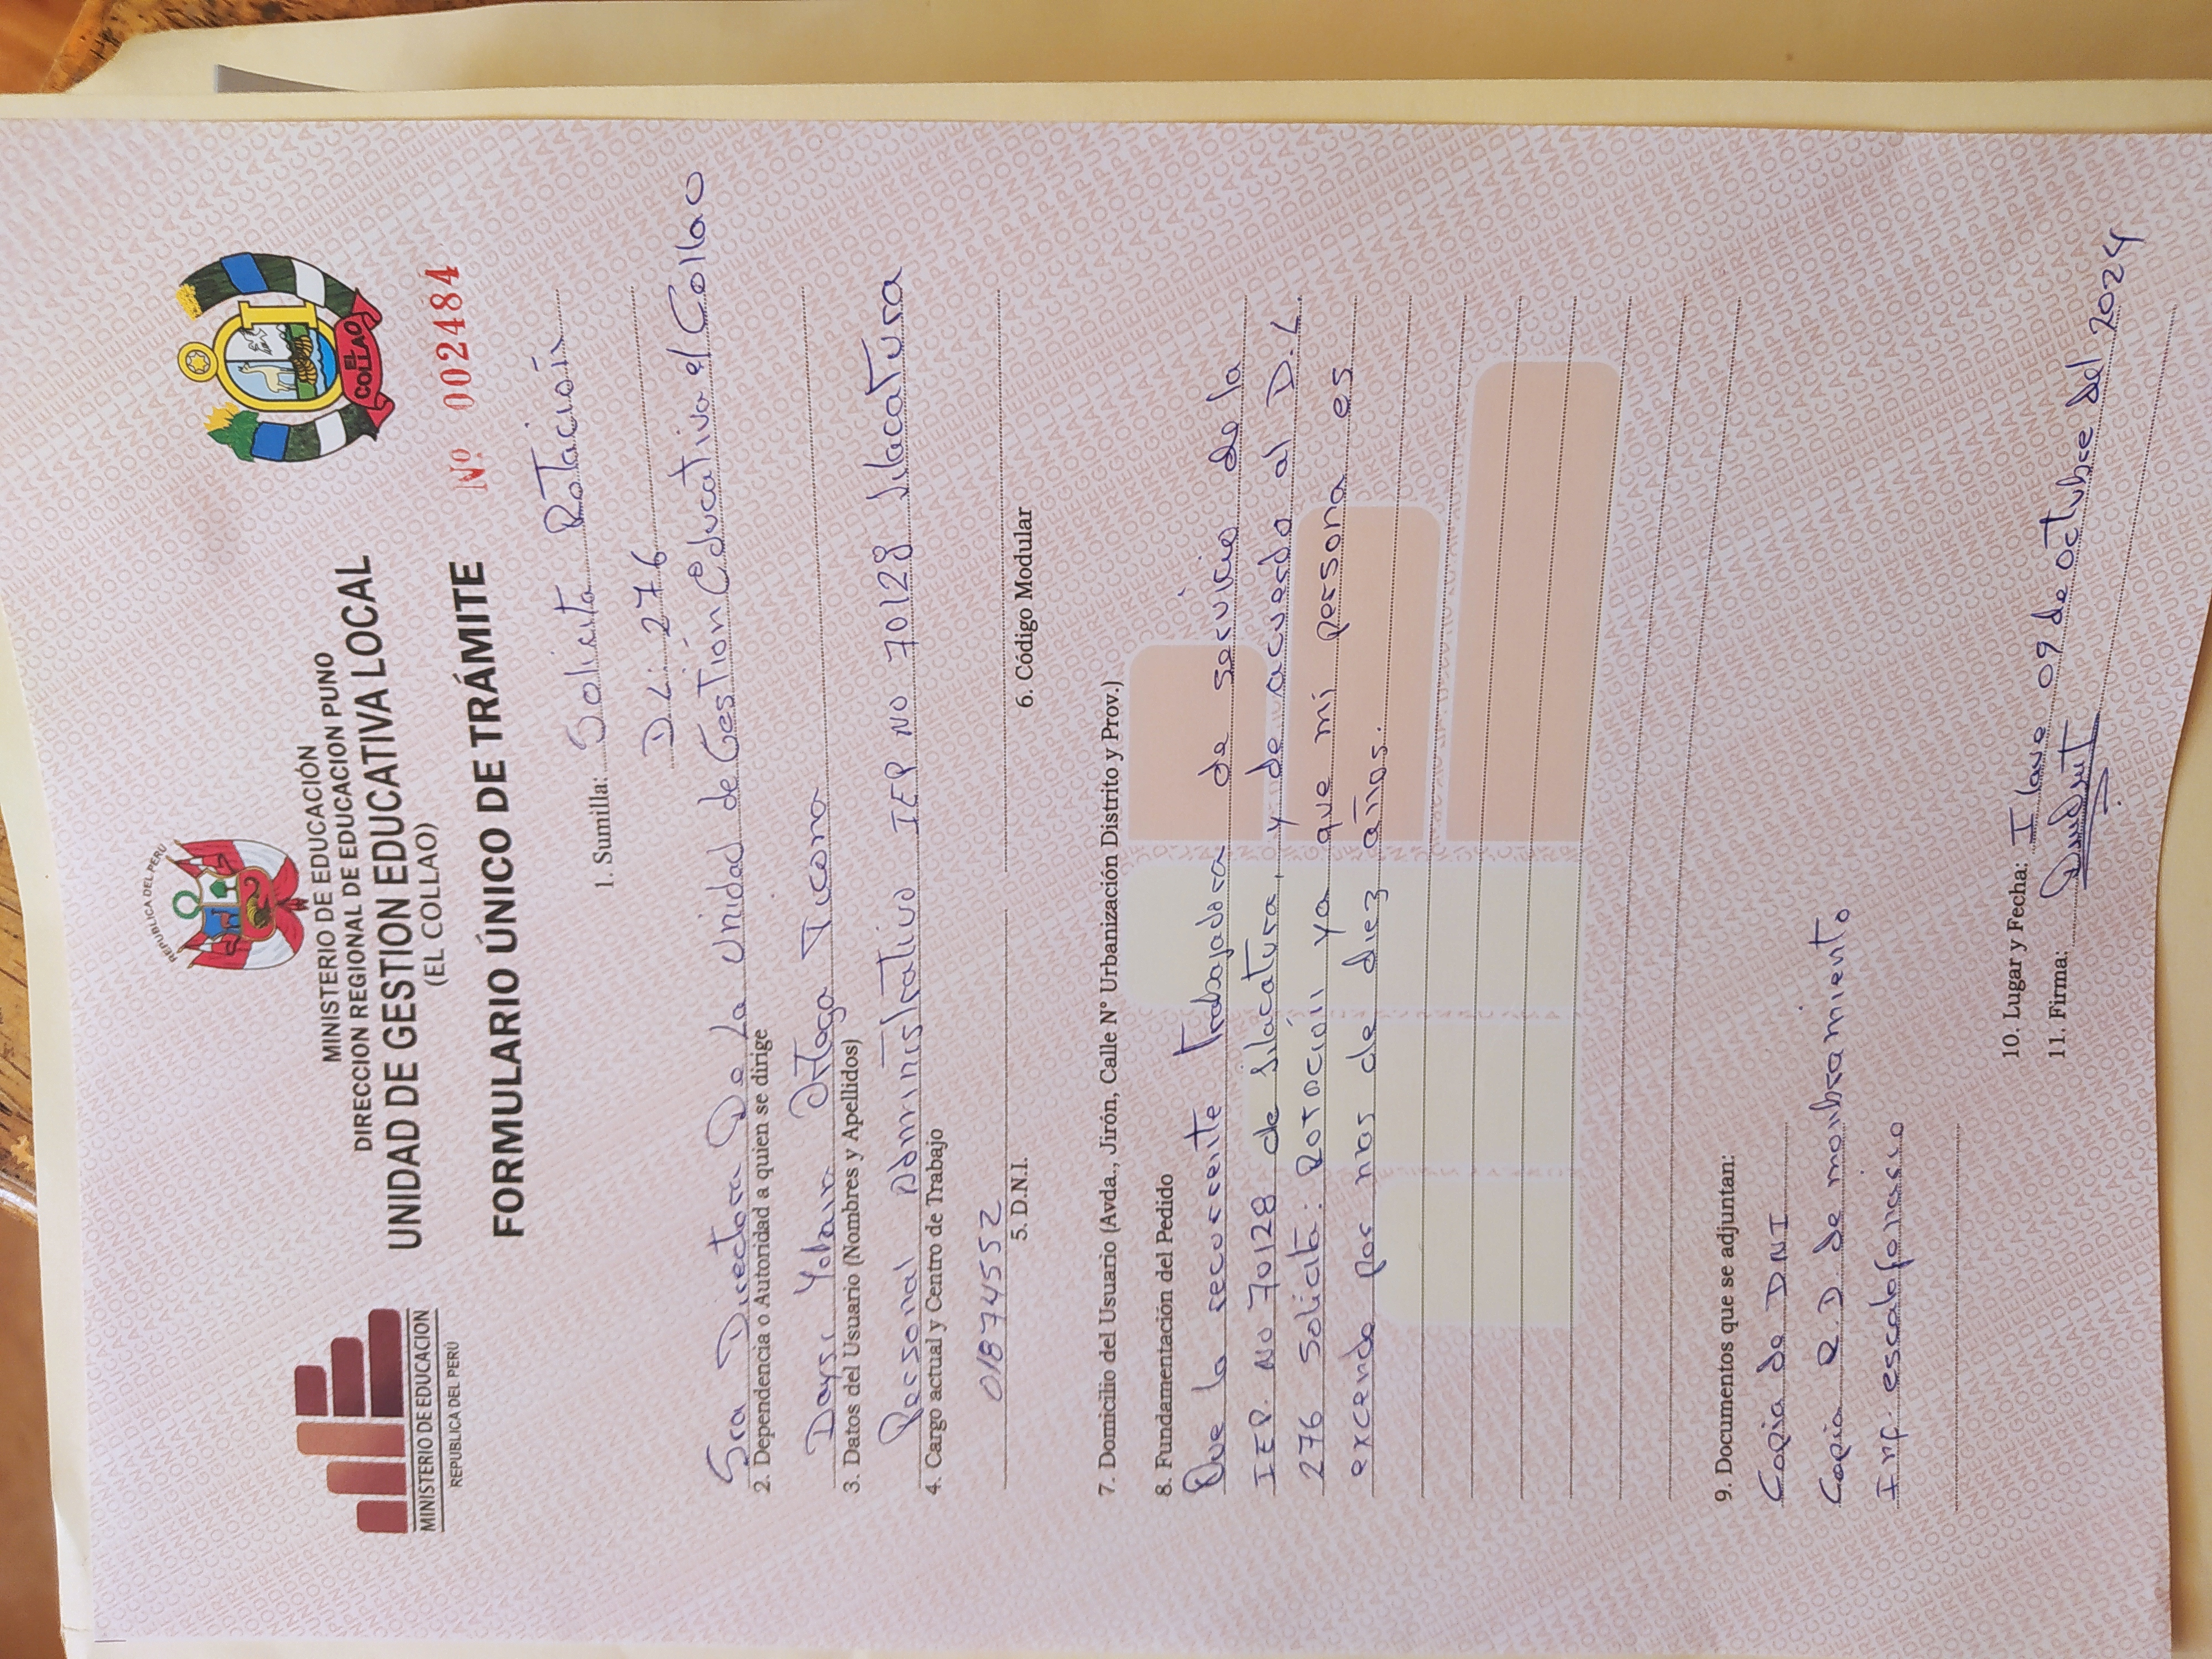 REPUBLICA DEL PERÚ
MINISTERIO DE EDUCACION
REPUBLICA DEL PERÚ
MINISTERIO DE EDUCACIÓN
DIRECCION REGIONAL DE EDUCACION PUNO
UNIDAD DE GESTION EDUCATIVA LOCAL
(EL COLLAO)
EL COLLAO
FORMULARIO ÚNICO DE TRÁMITE
Nº 002484
1. Sumilla: Solicita Rotación
D.L. 276
Sra Directora De La Unidad de Gestión Educativa el Collao
2. Dependencia o Autoridad a quien se dirige
Daysi Yolam Ortega Ticona
3. Datos del Usuario (Nombres y Apellidos)
Personal Administrativo IEP NO 70128 Jilacatura
4. Cargo actual y Centro de Trabajo
01874552
5. D.N.I.
6. Código Modular
7. Domicilio del Usuario (Avda., Jirón, Calle Nº Urbanización Distrito y Prov.)
8. Fundamentación del Pedido
Que la recurreite Trabajadora de servicio de la
IEP. NO 70128 de Jilacatura, y de acuerdo al D.L
276 Solicita: Rotación ya que mi persona es
excendo por mas de diez años.
9. Documentos que se adjuntan:
Copia de DNI
Copia R.D de monbramiento
Inf. escalafonario
10. Lugar y Fecha: Ilave 09 de octubre del 2024
11. Firma: